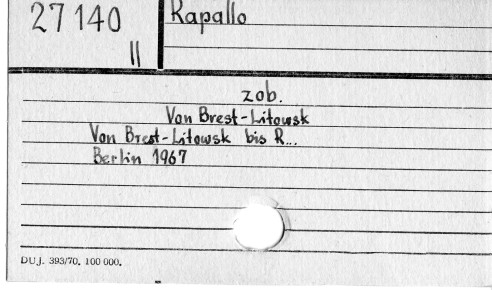 27 140
II
Rapallo
zob.
Von Brest-Litowsk
Von Brest-Litowsk bis R...
Berlin 1967
DUJ. 393/70. 100 000.